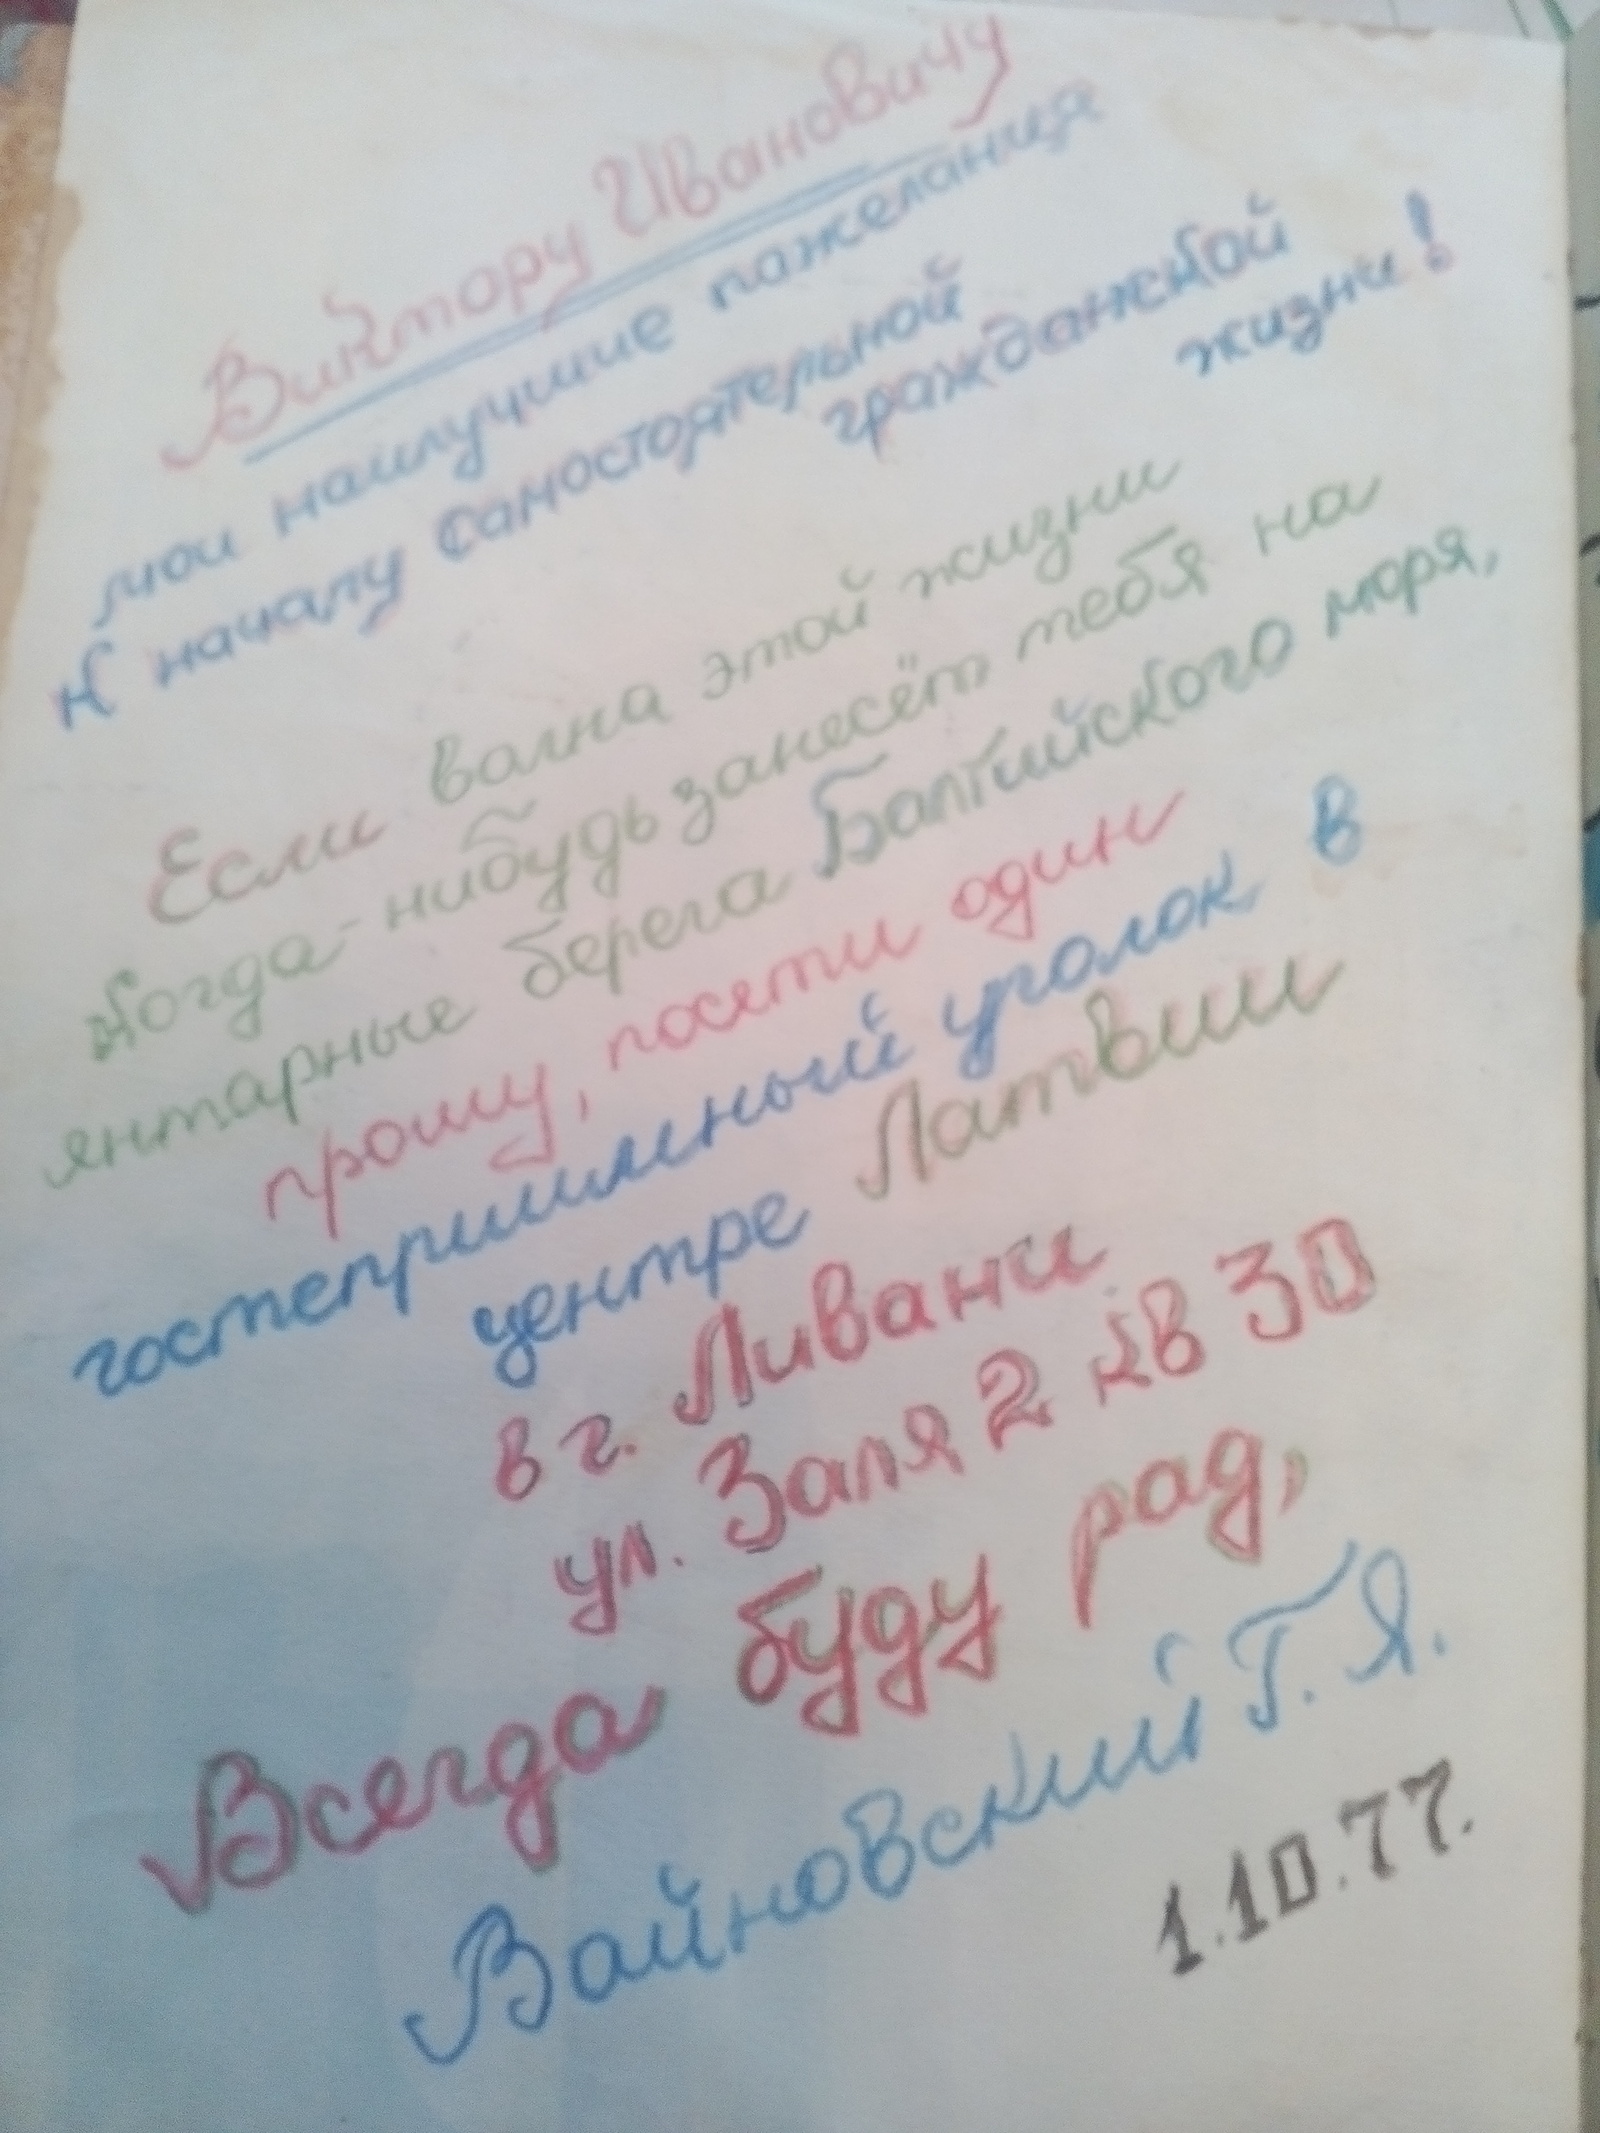 Виктору Ивановичу
мои наилучшие пажелания
к началу самостоятельной
гражданской
жизни!
Если волна этой жизни
когда-нибудь занесёт тебя на
янтарные берега Балтийского моря,
прошу, посети один
гостеприимный уголок в
центре Латвии
в г. Ливани
ул. Заля 2 кв 30
Всегда буду рад,
Войновский Г. Я.
1.10.77.